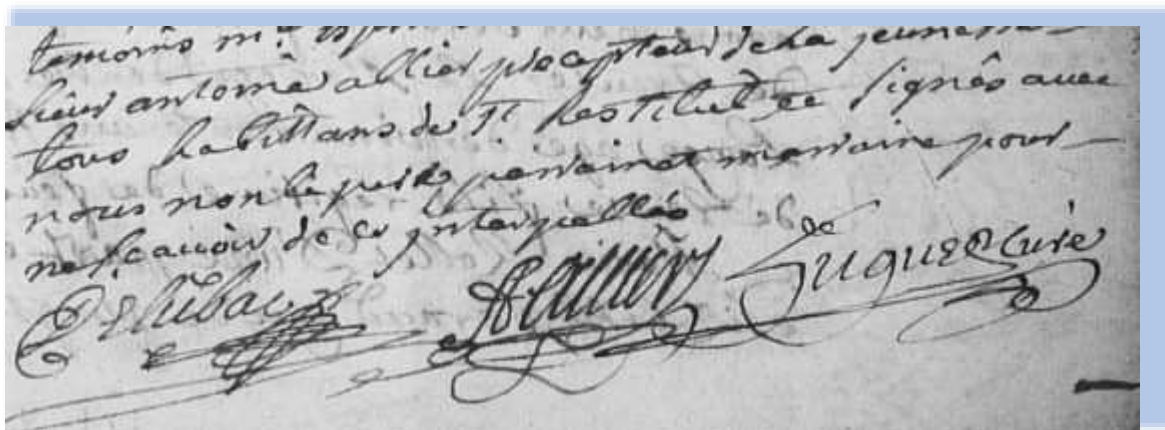 temoins m.e
sieur antoine allier precepteur de la jeunesse
tous habittans de st restitut se signés avec
nous non le pere parrain et marraine pour
ne scavoir de ce interpellés
allier de Hugues Curé